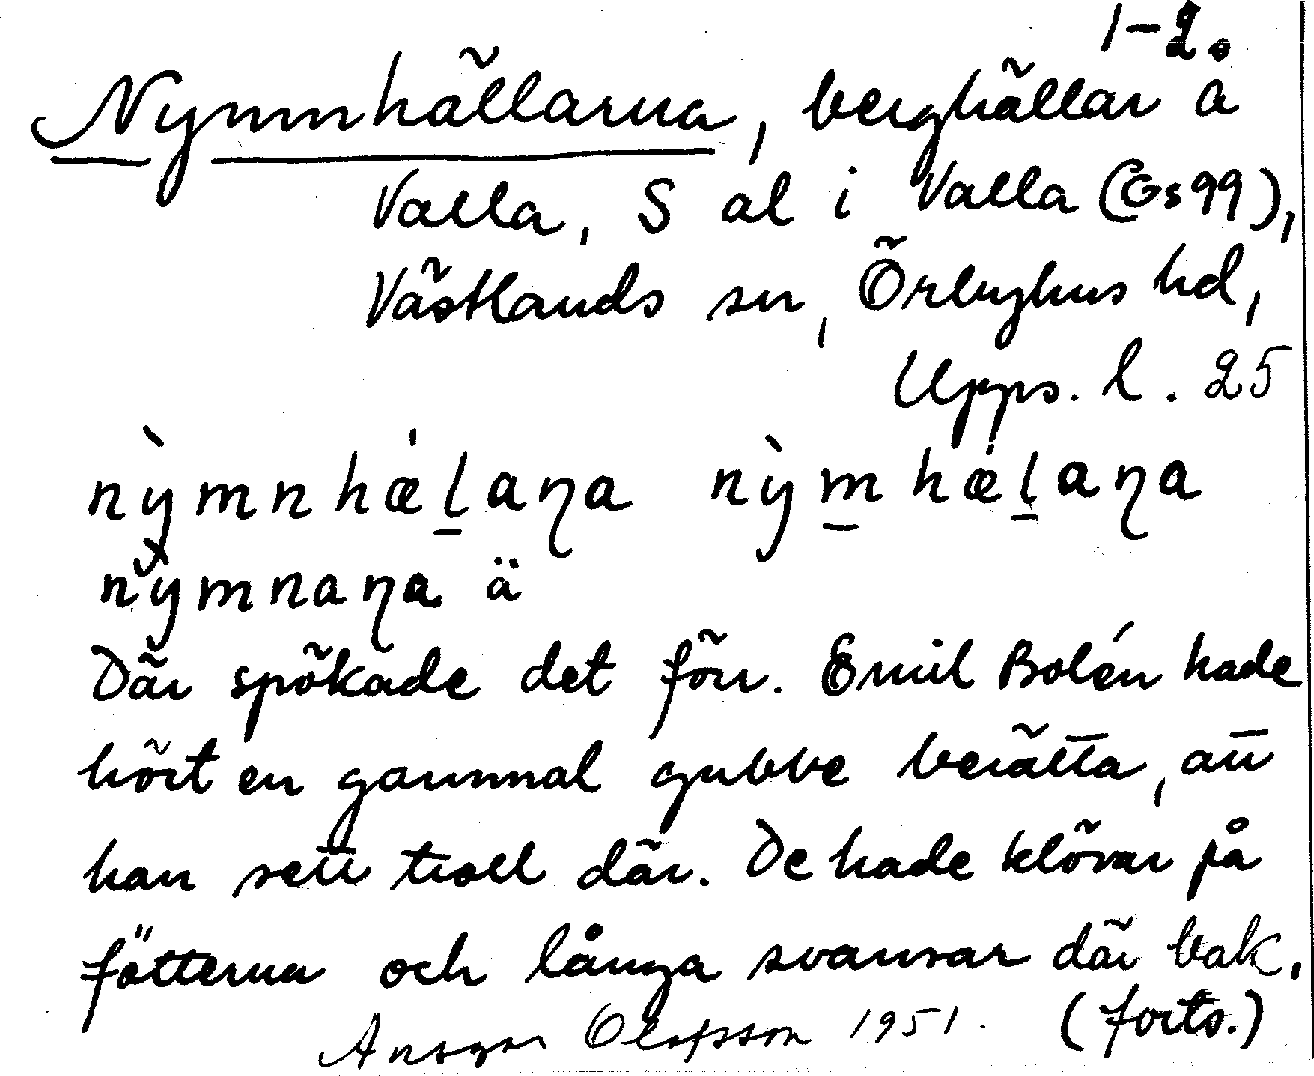 1-2.
Nymnhällarna, berghällar å
Valla, S al i Valla (Gs 99),
Västlands sn, Örbyhus hd,
Upps. l. 25
nỳmnhæ̀ḻaꞑa nỳm̱hæ̀ḻaꞑa
nỳmnaꞑa ä
Där spökade det förr. Emil Bolén hade
hört en gammal gubbe berätta, att
han sett troll där. De hade klövar på
fötterna och långa svansar där bak.
(forts.)
Ansgar Olofsson 1951.